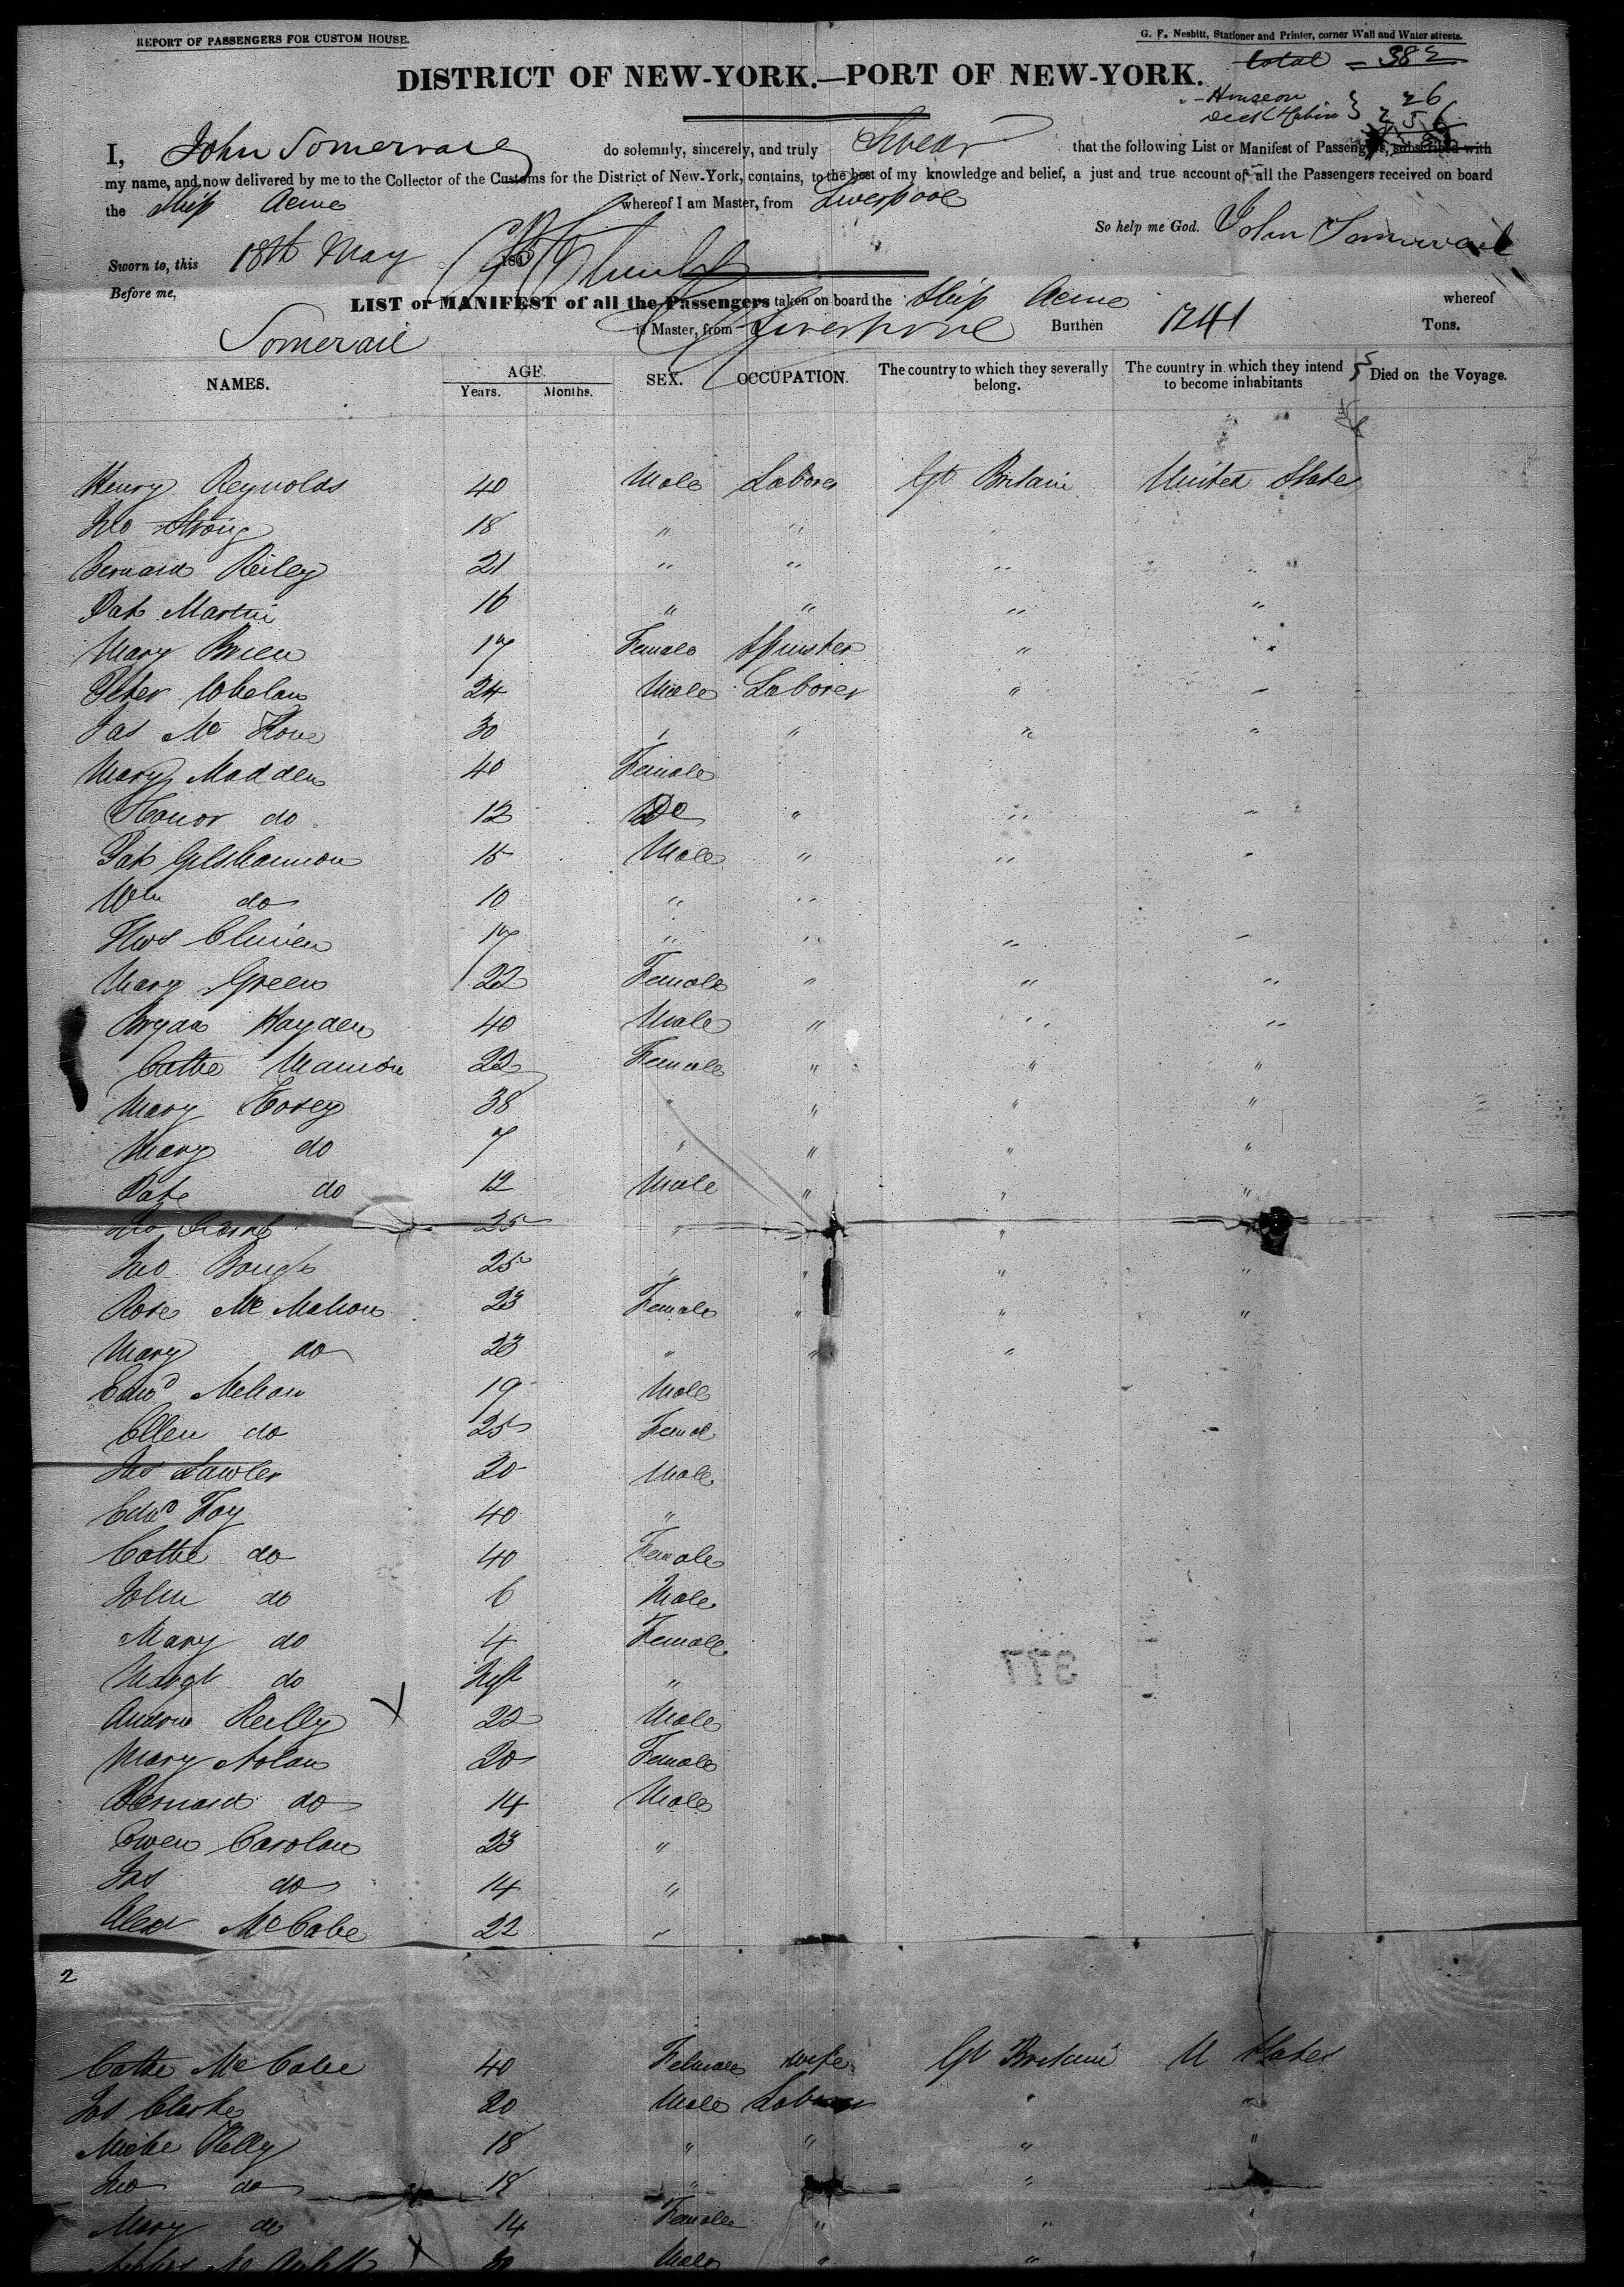 REPORT OF PASSENGERS FOR CUSTOM HOUSE.
G. F. Nesbitt, Stationer and Printer, corner Wall and Water streets.
total = 382
DISTRICT OF NEW-YORK.—PORT OF NEW-YORK.
26
256
I, John Somervail do solemnly, sincerely, and truly Swear that the following List or Manifest of Passengers, subscribed with
my name, and now delivered by me to the Collector of the Customs for the District of New-York, contains, to the best of my knowledge and belief, a just and true account of all the Passengers received on board
the Ship Acme whereof I am Master, from Liverpool
So help me God. John Somervail
Sworn to, this 18th May 185
Before me,
LIST or MANIFEST of all the Passengers taken on board the Ship Acme whereof
Somervail is Master, from Liverpool Burthen 1241 Tons.
NAMES. AGE. Years. Months. SEX. OCCUPATION. The country to which they severally belong. The country in which they intend to become inhabitants Died on the Voyage.
Henry Reynolds 40 Male Laborer Gt Britain United States
Jno Strong 18 " " " "
Bernard Reiley 21 " " " "
Pat Martin 16 " " " "
Mary Brien 17 Female Spinster " "
Peter Whelan 24 Male Laborer " "
Jas Mc Kone 30 " " " "
Mary Madden 40 Female
Honor do 12 Do " " "
Pat Gilshannon 15 Male " " "
Wm do 10 " "
Thos 17 " " " "
Mary Green 22 Female " " "
Bryan Hayden 40 Male " " "
Cathe Mannion 22 Female " " "
Mary Corey 38 " " " "
Mary do 7 " " " "
Pat do 12 Male " " "
25 " "
Jno 25 " " " "
Rose McMahon 23 Female " " "
Mary do 23 " " "
Edwd Mehan 19 Male
Ellen do 25 Femal
Jas Lawler 20 Male
Edwd Foy 40 "
Cathe do 40 Female
John do 6 Male
Mary do 4 Female
Margt do Inft "
Andrew Reilly X 22 Male
Mary Nolan 20 Female
Bernard do 14 Male
Owen Carolan 23 "
Jas do 14 "
Alexr McCabe 22 "
377
2
Cathe McCabe 40 Female wife Gt Britain U States
Jas Clarke 20 Male Laborer " "
Miche Kelly 18 " " " "
Jno do 18 " "
Mary do 14 Female " " "
X 30 Male " " "